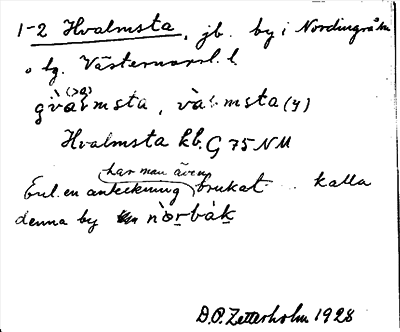 1-2 Hvalmsta, jb. by i Nordingrå sn
o tg. Västernorrl. l.
(>a)
gvalmsta, valmsta (y)
Hvalmsta kb. G 75 NM
har man även
Enl. en anteckning brukat kalla
denna by nòrbàk
D.O. Zetterholm 1928